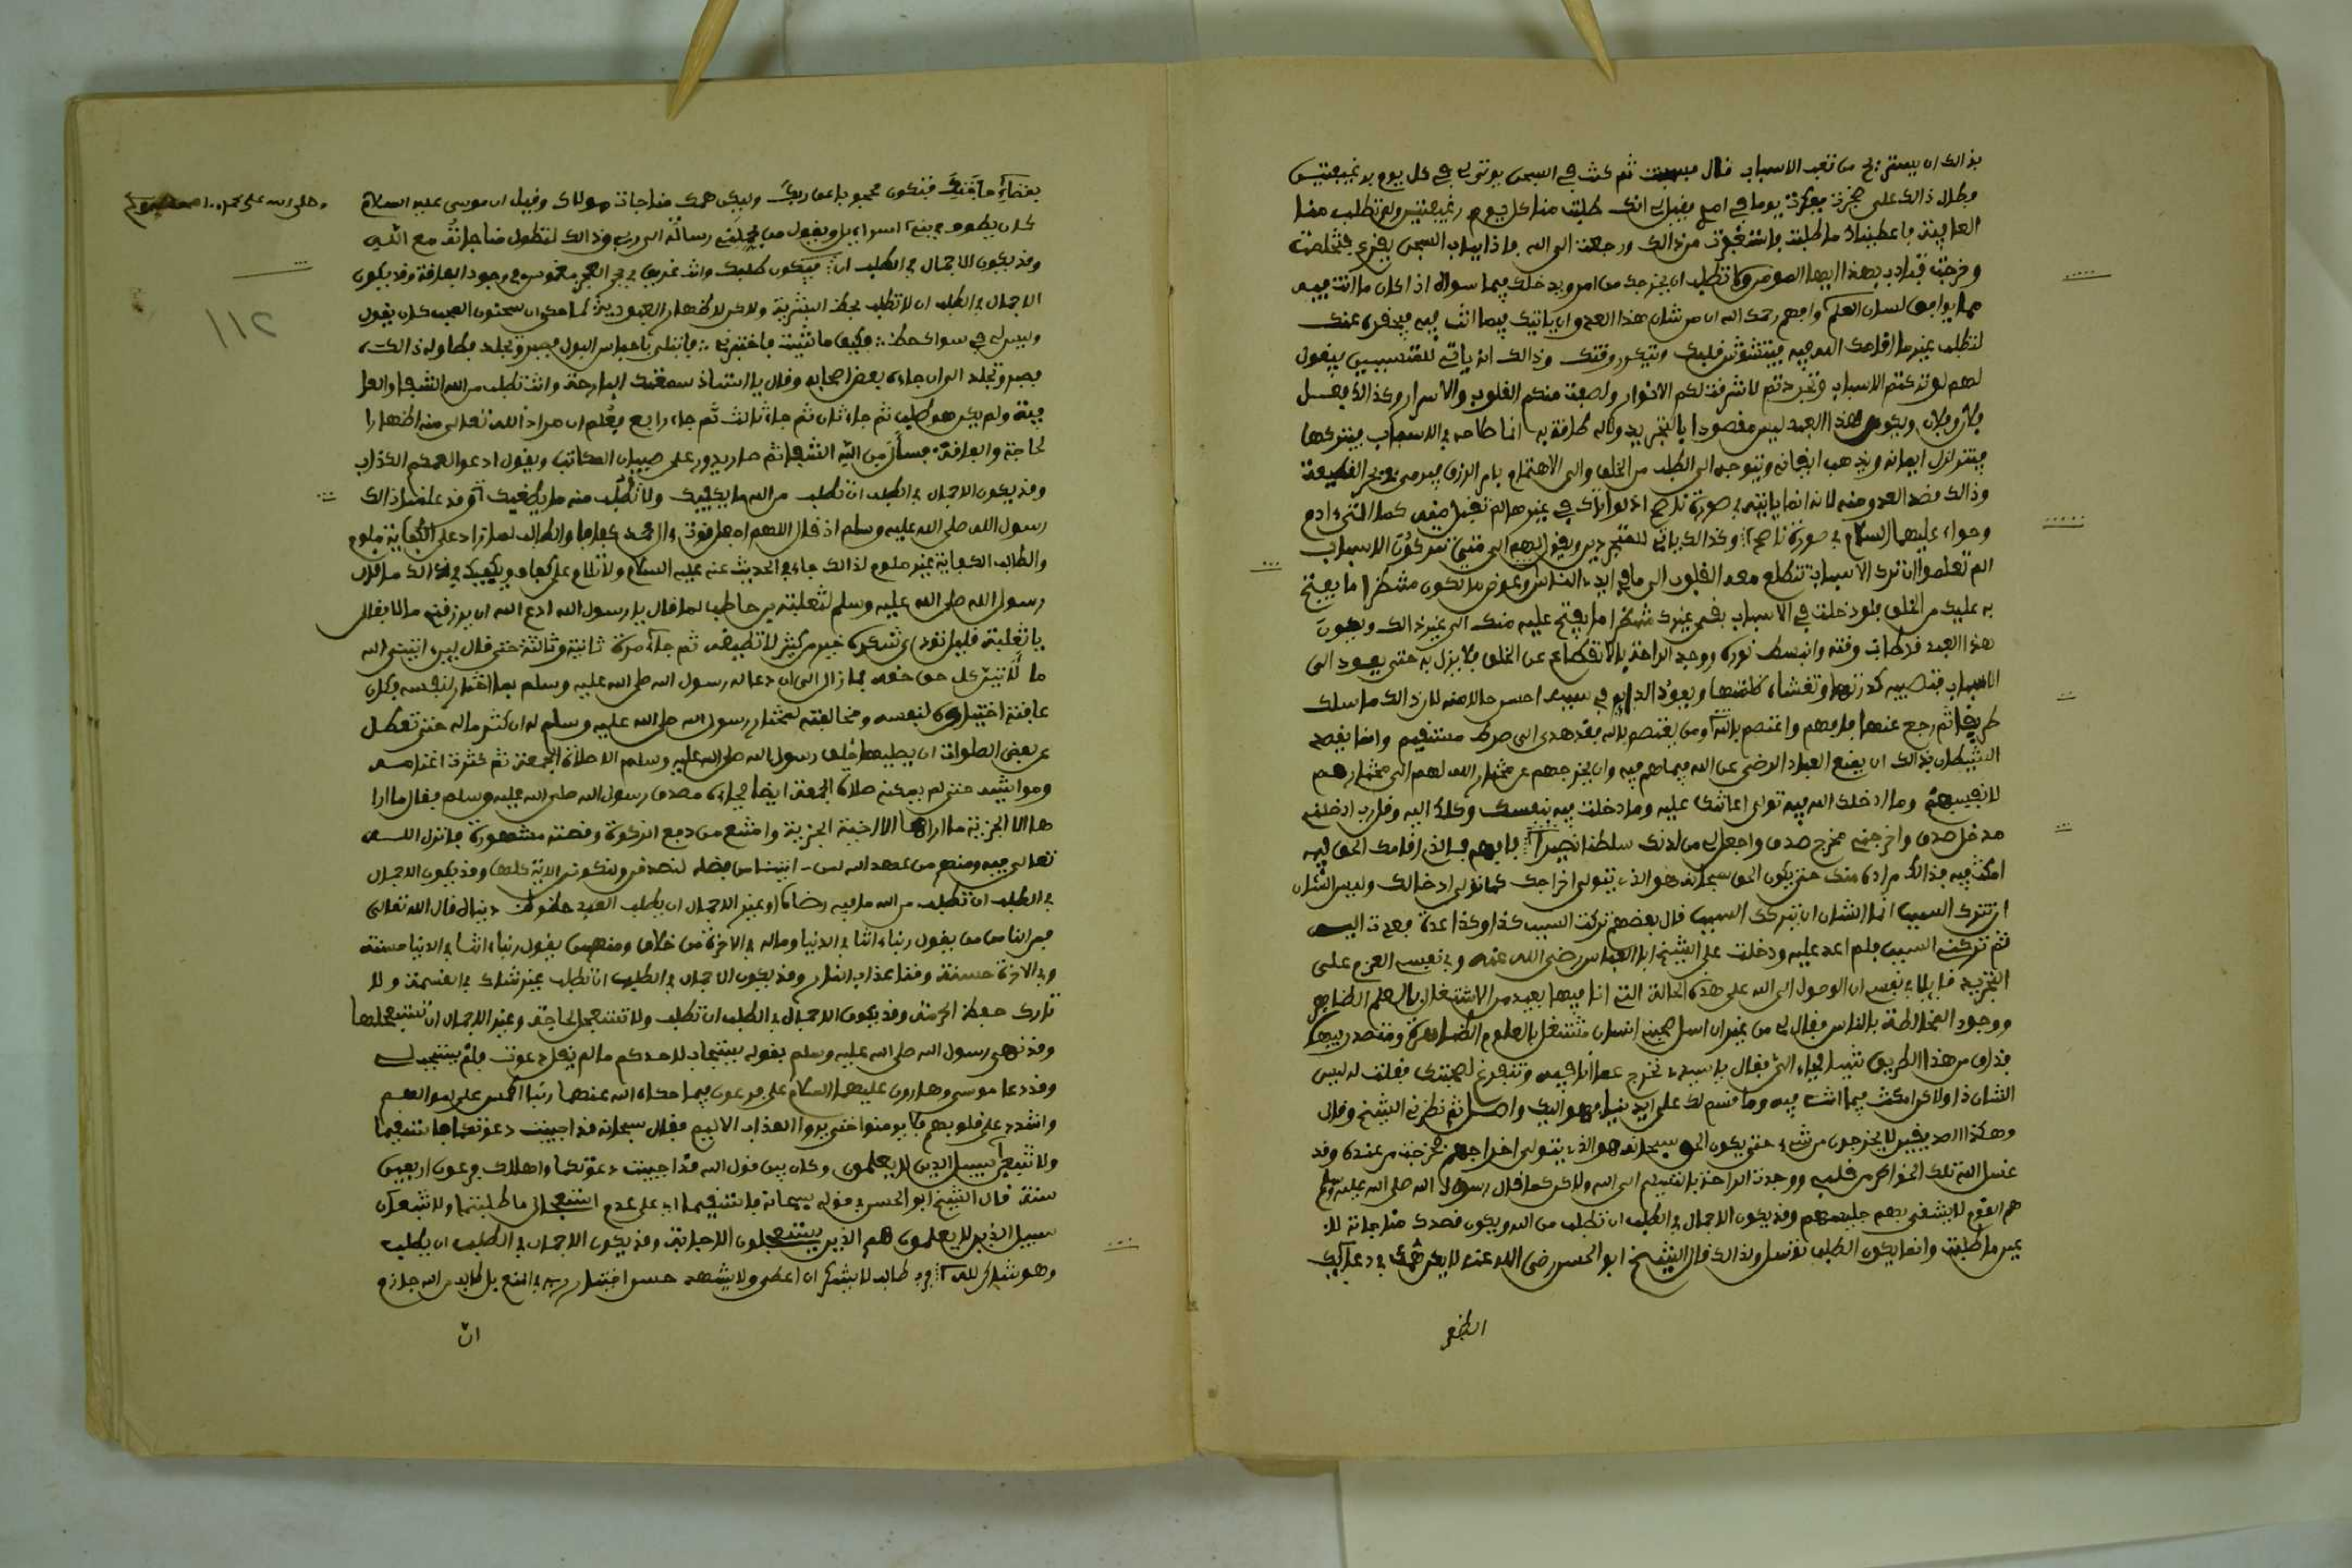 بذالك ان يستريح من تعب الاسباب قال فسجنت ثم كنت في السجن يوتى لي في كل يوم برغيفين
وطال ذالك علي ضجرت ففكرت يوما في امري فقيل لي انك طلبت منا كل يوم رغيفين ولم تطلب منا
العافية فاعطيناك ما طلبت فاستغفرت من ذالك ورجعت الى الله فاذا بباب السجن يقرع فتخلصت
وخرجت فتادب بهذا ايها المومن ولا تطلب ان يخرجك من امر ويدخلك فيما سواه اذا كان ما انت فيه
مما يوافق لسان العلم وافهم رحمك الله ان من شان هذا العدو ان ياتيك فيما انت فيه فيحقره عندك
لتطلب غير ما اقامك الله فيه فيتشوش قلبك ويتكدر وقتك وذالك انه ياتي للمتسببين فيقول
لهم لو تركتم الاسباب وتجردتم لاشرقت لكم الانوار ولصفت منكم القلوب والاسرار وكذالك فعل
فلان وفلان ويكون هذا العبد ليس مقصودا بالتجريد ولا له طاقة به انما صلاحه في الاسباب فيتركها
فيتزلزل ايمانه ويذهب ايقانه ويتوجه الى الطلب من الخلق والى الاهتمام بامر الرزق فيرمى في بحر القطيعة
وذالك قصد العدو منه لانه انما ياتيه في صورة ناصح اذ لو اتاك في غيرها لم تقبل منه كما اتى ادم
وحواء عليهما السلام في صورة ناصح وكذالك ياتي للمتجردين ويقول لهم الى متى تتركون الاسباب
الم تعلموا ان ترك الاسباب تتطلع معه القلوب الى ما في ايدي الناس وعوض ما تكون منتظرا ما يفتح
به عليك من الخلق فلو دخلت في الاسباب بقي غيرك منتظرا ما يفتح عليه منك الى غير ذالك ويكون
هذا العبد قد طاب وقته وانبسط نوره ووجد الراحة بالانقطاع عن الخلق فلا يزال به حتى يعود الى
الاسباب فتصيبه كدرتها وتغشاه ظلمتها ويعود الدائم في سببه احسن حالا منه لان ذالك ما سلك
طريقا ثم رجع عنها فافهم واعتصم بالله ومن يعتصم بالله فقد هدي الى صراط مستقيم وانما يقصد
الشيطان بذالك ان يمنع العباد الرضى عن الله فيما هم فيه وان يخرجهم عن مختار الله لهم الى مختارهم
لانفسهم وما ادخلك الله فيه تولى اعانتك عليه وما دخلت فيه بنفسك وكلك اليه وقل رب ادخلني
مدخل صدق واخرجني مخرج صدق واجعل لي من لدنك سلطنا نصيرا فالذي اقامك الحق فيه
امكث فيه فذالك مراده منك حتى يكون الحق سبحانه هو الذي يتولى اخراجك كما تولى ادخالك وليس الشان
ان تترك السبب انما الشان ان يتركك السبب قال بعضهم تركت السبب كذا وكذا مرة فعدت اليه
ثم تركني السبب فلم اعد اليه ودخلت على الشيخ ابا العباس رضي الله عنه وفي نفسي العزم على
التجريد قائلا في نفسي ان الوصول الى الله على هذه الحالة التي انا فيها بعيد من الاشتغال بالعلم الظاهر
ووجود المخالطة بالناس فقال لي من غير ان اسئل صحبني انسان مشتغل بالعلوم الظاهرة ومتصدر فيها
فذاق من هذا الطريق شيئا فجاء الي فقال يا سيدي نخرج عما انا فيه ونتفرغ لصحبتك فقلت له ليس
الشان ذا ولكن امكث فيما انت فيه وما قسم لك على ايدينا فهو اليك واصل ثم نظر لي الشيخ وقال
وهكذا الصديقين لا يخرجون من شيء حتى يكون الحق سبحانه هو الذي يتولى اخراجهم فخرجت من عنده وقد
غسل الله تلك الخواطر من قلبي ووجدت الراحة بالتسليم الى الله ولاكن كما قال رسول الله صلى الله عليه وسلم
هم القوم لا يشقى بهم جليسهم وقد يكون الاجمال في الطلب ان تطلب من الله ويكون قصدك مناجاته لا
عين ما طلبت وانما يكون الطلب توسلا ولذالك قال الشيخ ابو الحسن رضي الله عنه لا يكن همك في دعائك
الظفر
بقضاء حاجتك فتكون محجوبا عن ربك وليكن همك مناجات مولاك وقيل ان موسى عليه السلام
كان يطوف في بني اسراءيل ويقول من يحملني رسالة الى ربي وذالك لتطول مناجاته مع الله
وقد يكون الاجمال في الطلب ان يكون طلبك وانت غريق في بحر العجز مغموس في وجود الفاقة وقد يكون
الاجمال في الطلب ان لا تطلب بحظ البشرية ولاكن لاظهار العبودية كما حكى ان سمنون المحب كان يقول
وليس لي في سواك حظ فكيف ما شئت فاختبرني فابتلي باحتباس البول فصبر وتجلد وطاوله ذالك
فصبر وتجلد الى ان جاءه بعض اصحابه وقال يا استاذ سمعتك البارحة وانت تطلب من الله الشفاء والعا
فية ولم يكن هو طلب ثم جاء ثان ثم جاء ثالث ثم جاء رابع فعلم ان مراد الله تعالى منه اظهارا
لحاجة والفاقة فسأل من الله الشفاء ثم صار يدور على صبيان المكاتب ويقول ادعوا لعمكم الكذاب
وقد يكون الاجمال في الطلب ان تطلب من الله ما يكفيك ولا تطلب منه ما يطغيك وقد علمنا ذالك
رسول الله صلى الله عليه وسلم اذ قال اللهم اجعل قوت ءال محمد كفافا والطالب لما زاد على الكفاية ملوم
والطالب الكفاية غير ملوم لذالك جاء في الحديث عنه عليه السلام ولا تلام على كفاف ويكفيك في ذالك ما قال
رسول الله صلى الله عليه وسلم لثعلبة بن حاطب لما قال يا رسول الله ادع الله ان يرزقني مالا فقال
يا ثعلبة قليل تودي شكره خير من كثير لا تطيقه ثم جاءه مرة ثانية وثالثة حتى قال لين اتيني الله
مالا لاتين كل حق حقه فما زال الى ان دعا له رسول الله صلى الله عليه وسلم بما اختار لنفسه وكان
عاقبة اختياره لنفسه ومخالفته لمختار رسول الله صلى الله عليه وسلم له ان كثر ماله حتى تعطل
عن بعض الصلوات ان يصليها خلف رسول الله صلى الله عليه وسلم الا صلاة الجمعة ثم كثرت اغنامه
ومواشيه حتى لم يمكنه صلاة الجمعة ايضا فجاءه مصدق رسول الله صلى الله عليه وسلم فقال ما ارا
ها الا الجزية ما اراها الا اخية الجزية وامتنع من دفع الزكوة وقصته مشهورة فانزل الله
تعالى فيه ومنهم من عهد الله لئن اتينا من فضله لنصدقن ولنكونن الاية كلها وقد يكون الاجمال
في الطلب ان تطلب من الله ما فيه رضاك وغير الاجمال ان يطلب العبد حظوظ دنياه قال الله تعالى
فمن الناس من يقول ربنا ءاتنا في الدنيا وماله في الاخرة من خلاق ومنهم من يقول ربنا ءاتنا في الدنيا حسنة
وفي الاخرة حسنة وقنا عذاب النار وقد يكون الاجمال في الطلب ان تطلب غير شاك في القسمة ولا
تارك حفظ الحرمة وقد يكون الاجمال في الطلب ان تطلب ولا تستعجل الاجابة وغير الاجمال ان تستعجلها
وقد نهى رسول الله صلى الله عليه وسلم بقوله يستجاب لاحدكم ما لم يقل دعوت فلم يستجب لي
وقد دعا موسى وهارون عليهما السلام على فرعون فيما حكاه الله عنهما ربنا اطمس على اموالهم
واشدد على قلوبهم فلا يومنوا حتى يروا العذاب الاليم فقال سبحانه قد اجيبت دعوتكما فاستقيما
ولا تتبعن سبيل الذين لا يعلمون وكان بين قول الله قد اجيبت دعوتكما واهلاك فرعون اربعين
سنة قال الشيخ ابو الحسن في قوله سبحانه فاستقيما اي على عدم استعجال ما طلبتما ولا تتبعان
سبيل الذين لا يعلمون هم الذين يستعجلون الاجابة وقد يكون الاجمال في الطلب ان يطلب
وهو شاكر لله طالب لا يشكر ان اعطي ولا يشهد حسن اختيار ربه في المنع بل طالب من الله جازم
ان
وصلى الله على
١١٢